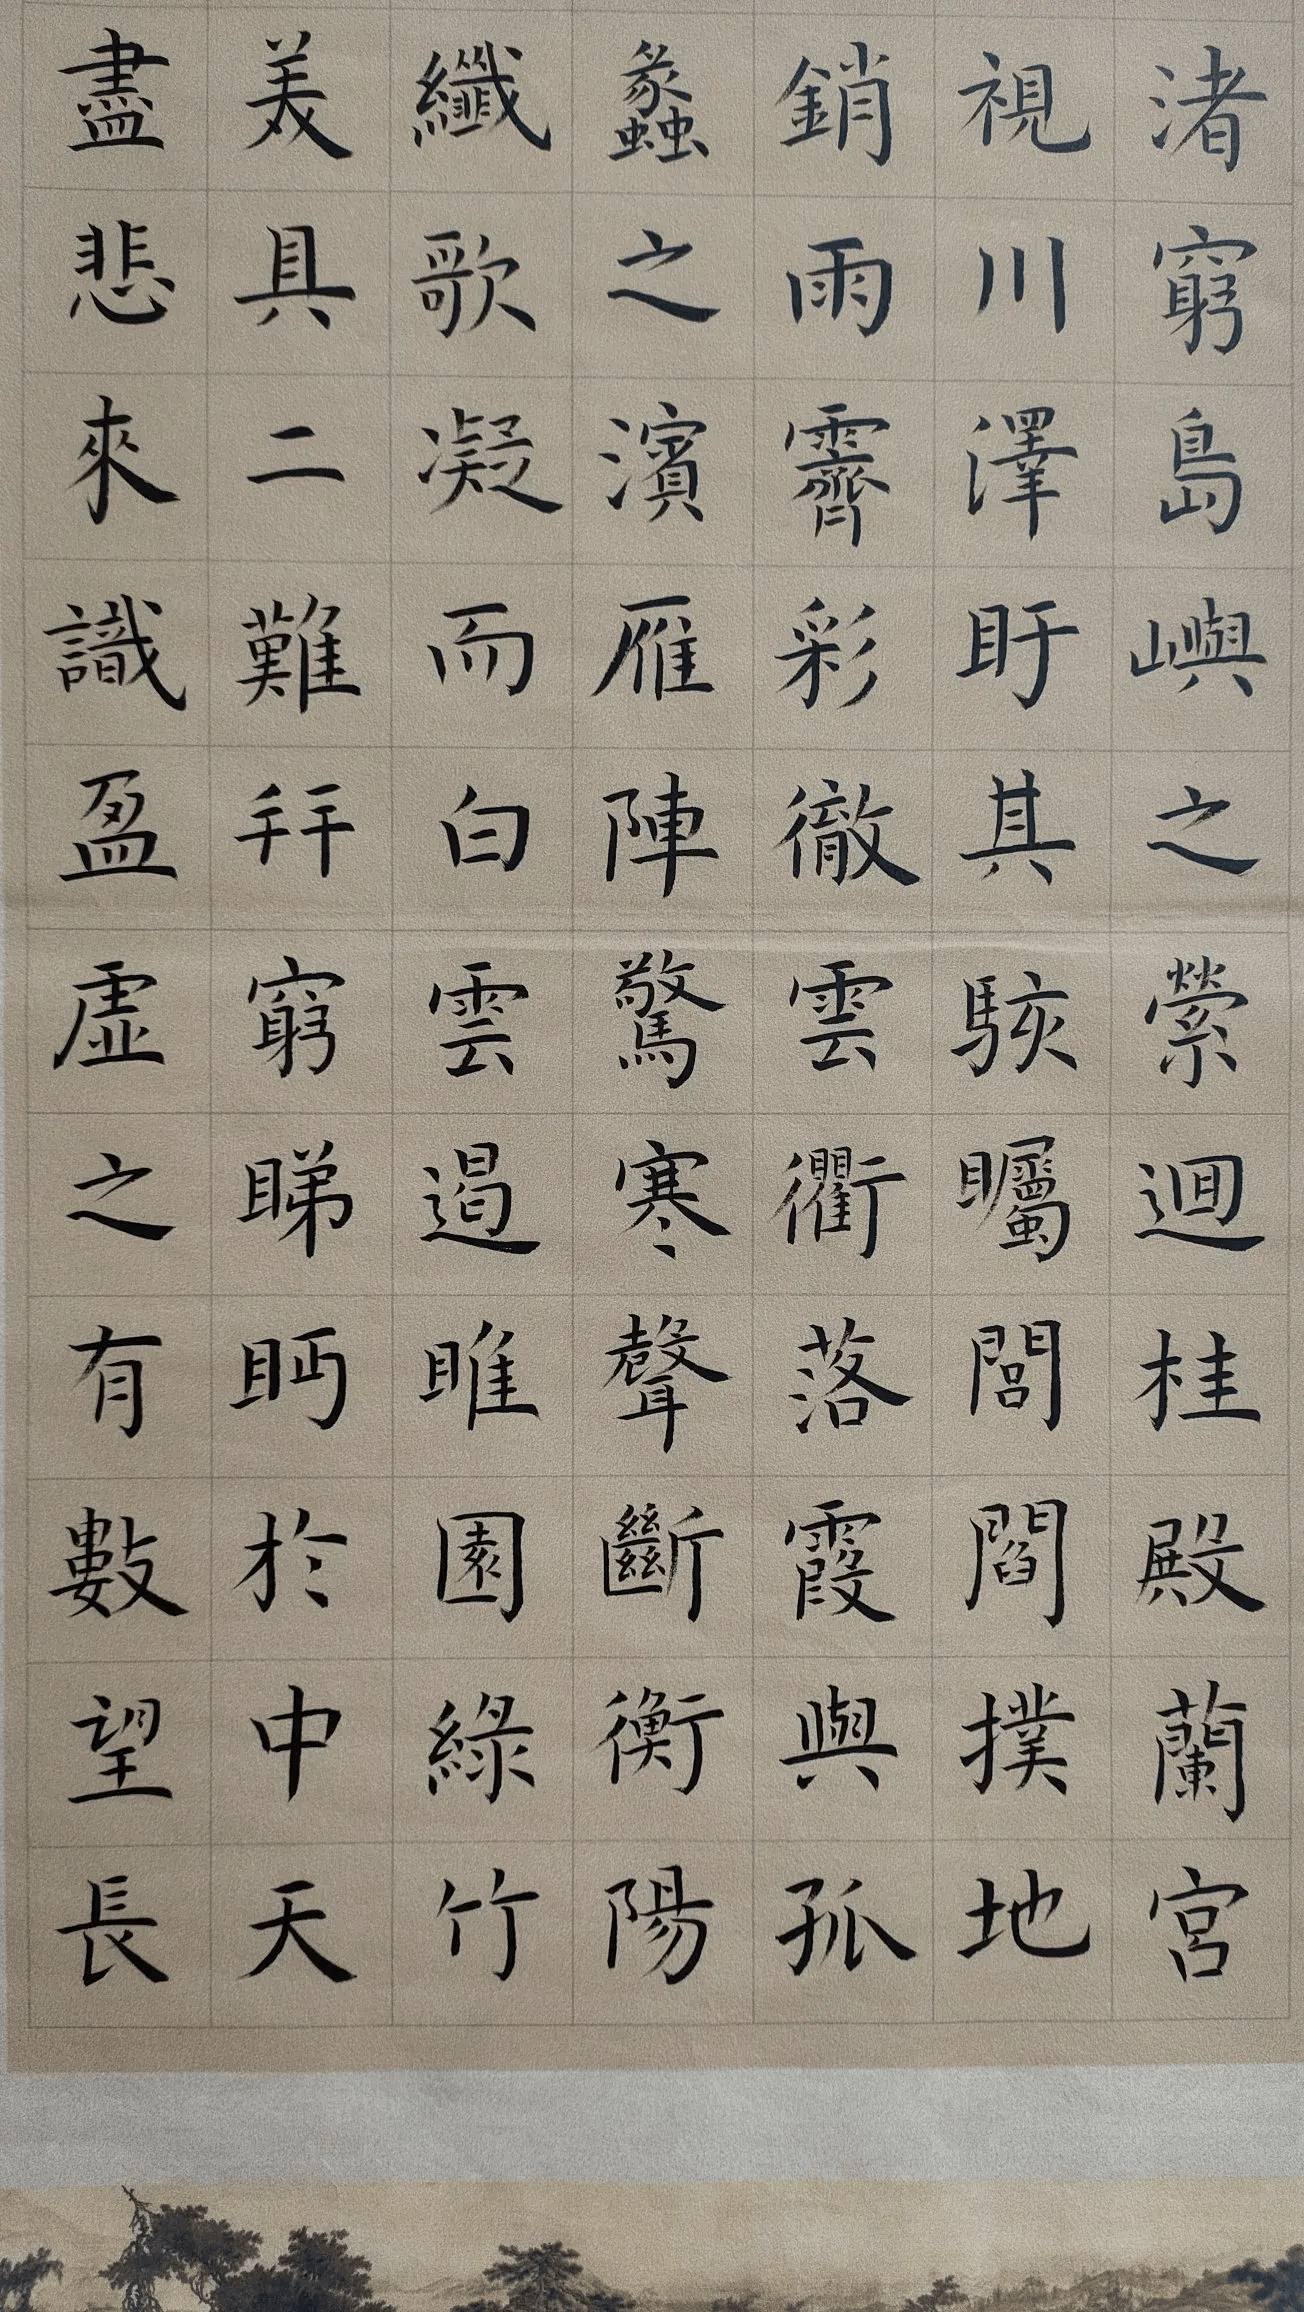 渚窮島嶼之縈迴桂殿蘭宮
視川澤盱其駭矚閭閻撲地
銷雨霽彩徹雲衢落霞與孤
蠡之濱雁陣驚寒聲斷衡陽
纖歌凝而白雲遏睢園綠竹
美具二難拜窮睇眄於中天
盡悲來識盈虛之有數望長